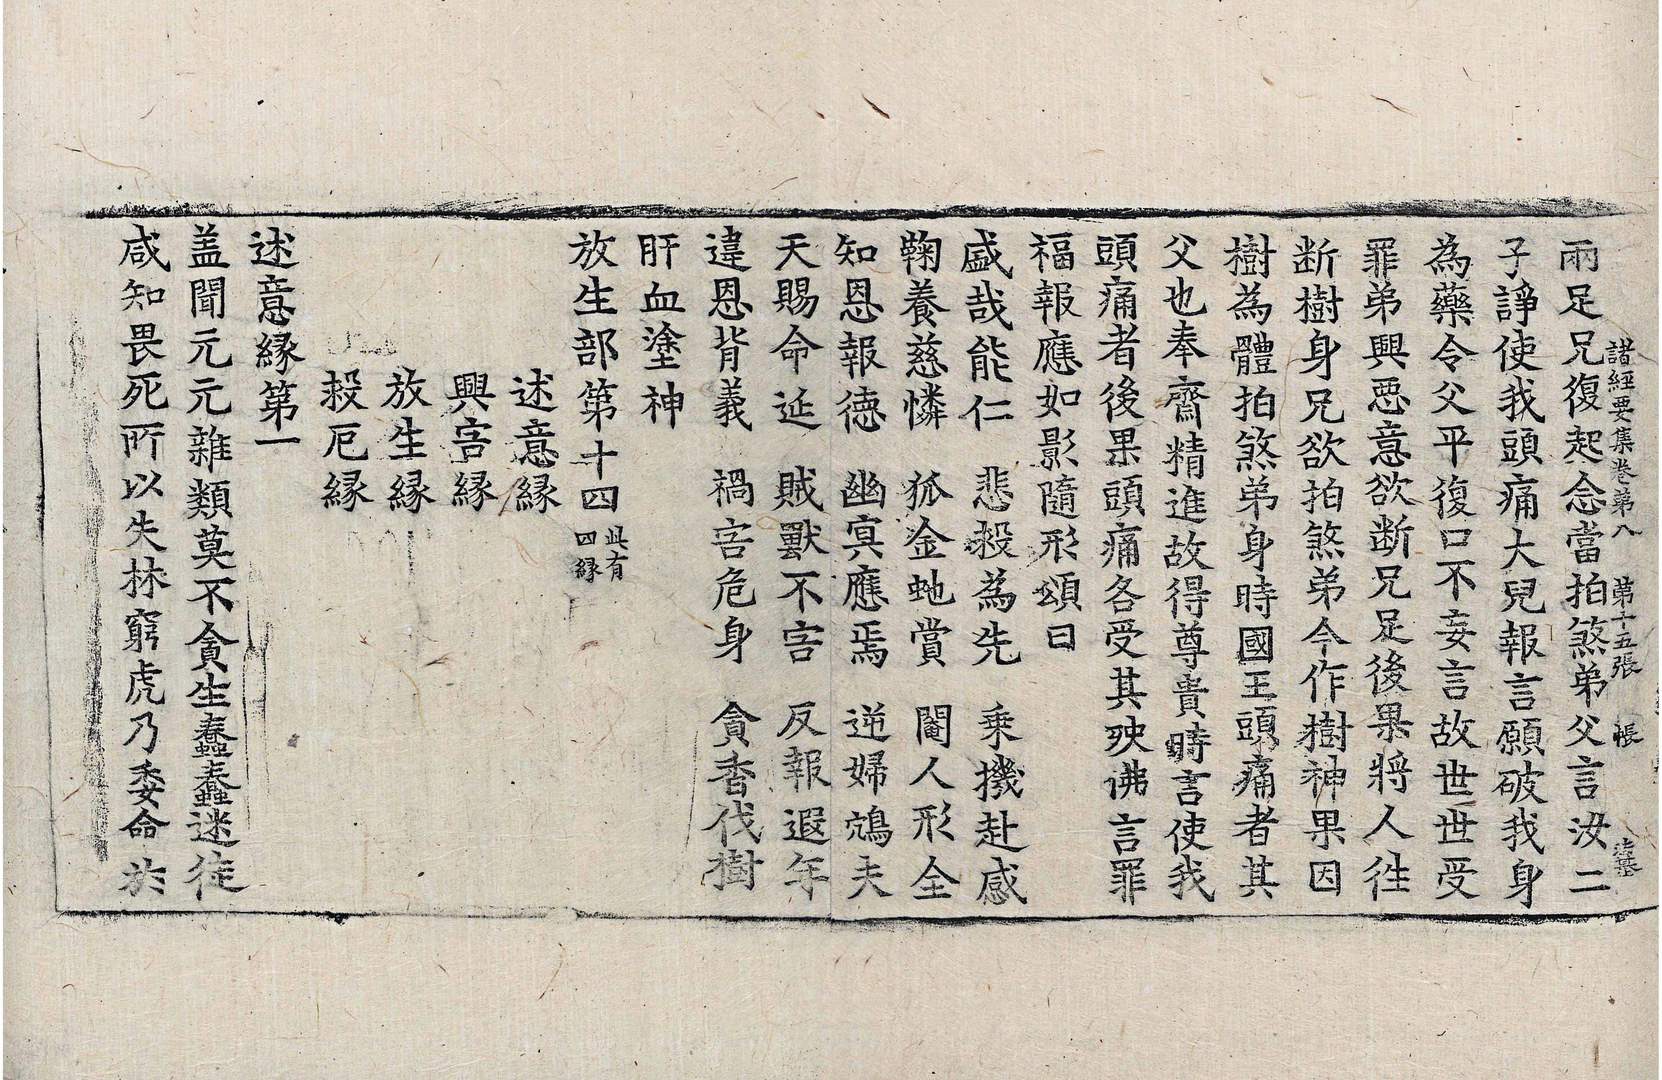 諸經要集卷第八 第十五張 帳
兩足兄復起念當拍煞弟父言汝二
子諍使我頭痛大兒報言願破我身
為藥令父平復口不妄言故世世受
罪弟興惡意欲斷兄足後果將人徃
断樹身兄欲拍煞弟今作樹神果因
樹為體拍煞弟身時國王頭痛者其
父也奉齋精進故得尊貴時言使我
頭痛者後果頭痛各受其殃佛言罪
福報應如影隨形頌曰
盛哉能仁 悲殺為先 乘機赴感
鞠養慈憐 狐金虵賞 閹人形全
知恩報德 幽冥應焉 逆婦鴆夫
天賜命延 賊獸不害 反報遐年
違恩背義 禍害危身 貪香伐樹
肝血塗神
放生部第十四 此有四緣
述意緣
興害緣
放生緣
殺厄緣
述意緣第一
盖聞元元雜類莫不貪生蠢蠢迷徒
咸知畏死所以失林窮虎乃委命於